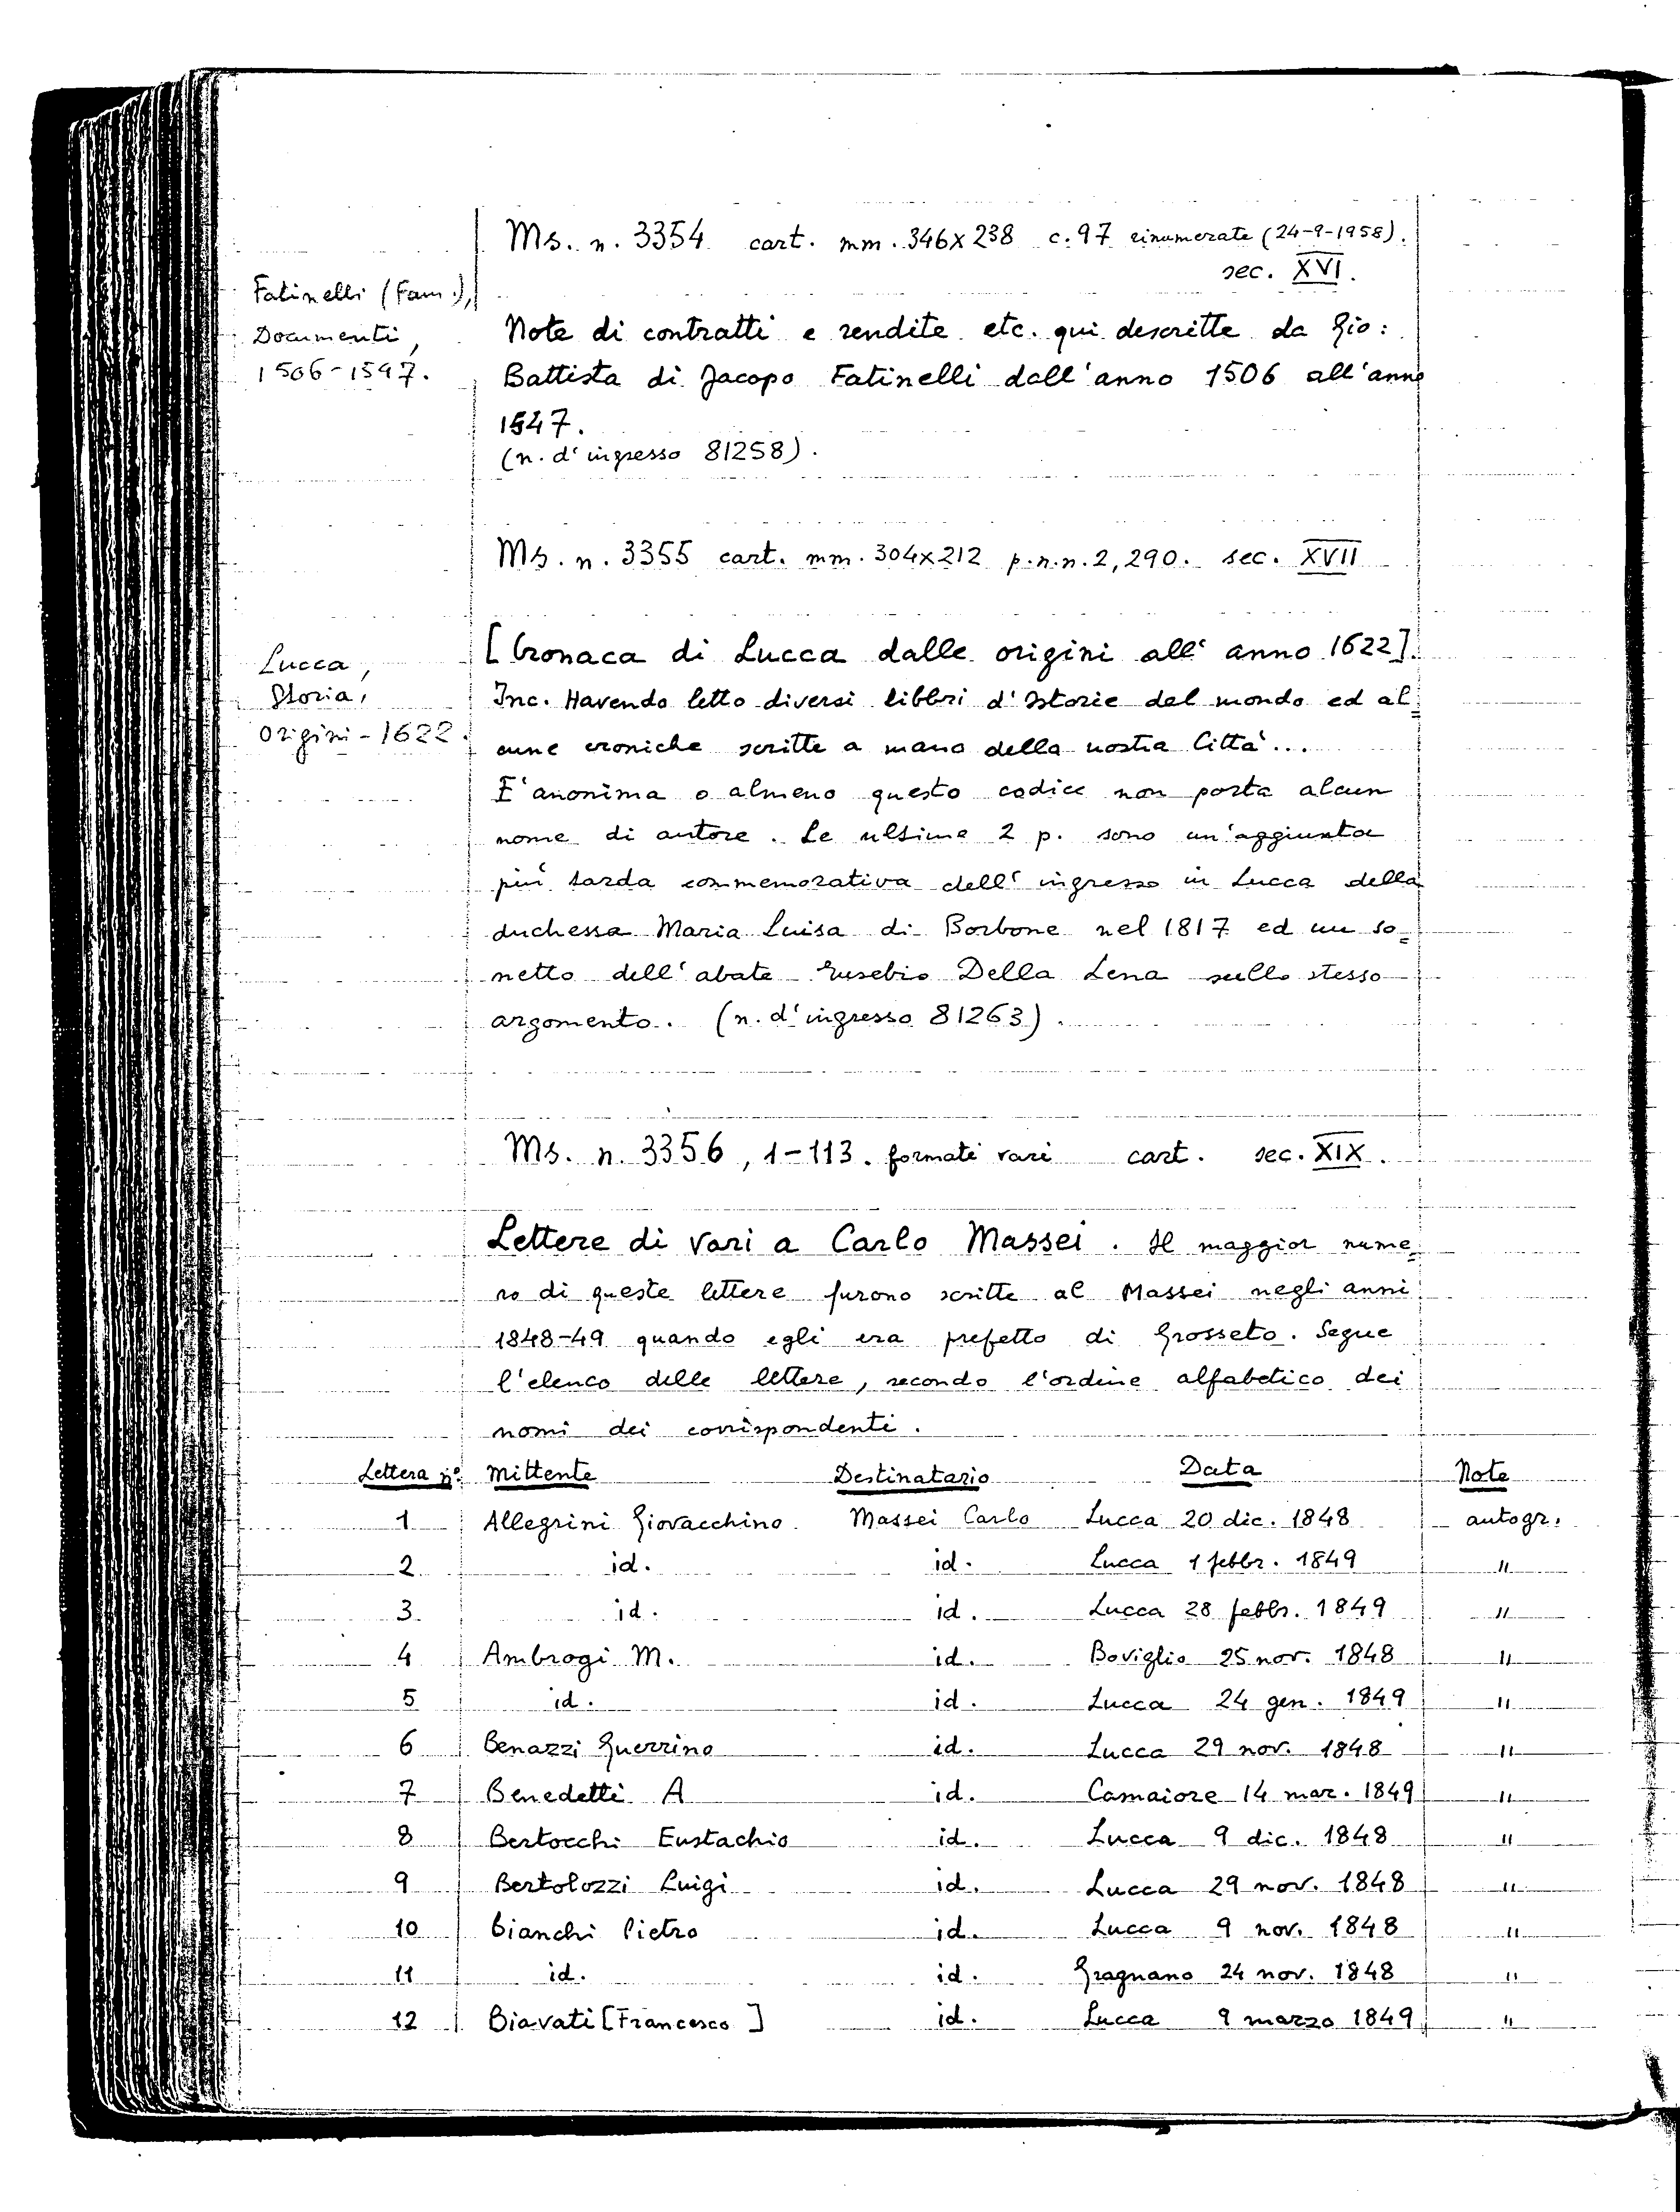 Ms. n. 3354 cart. mm. 346x238 c. 97 rinumerate (24-9-1958).
sec. XVI.
Fatinelli (Fam.),
Documenti,
1506-1547.
Note di contratti e rendite etc. qui descritte da Gio:
Battista di Jacopo Fatinelli dall'anno 1506 all'anno
1547.
(n. d'ingresso 81258).
Ms. n. 3355 cart. mm. 304x212 p.n.n. 2, 290. sec. XVII
Lucca,
Storia,
origini-1622.
[Cronaca di Lucca dalle origini all'anno 1622].
Inc. Havendo letto diversi libbri d'Istorie del mondo ed al=
cune croniche scritte a mano della nostra Città...
E' anonima o almeno questo codice non porta alcun
nome di autore. Le ultime 2 p. sono un'aggiunta
più tarda commemorativa dell'ingresso in Lucca della
duchessa Maria Luisa di Borbone nel 1817 ed un so=
netto dell'abate Eusebio Della Lena sullo stesso
argomento. (n. d'ingresso 81263).
Ms. n. 3356, 1-113. formati vari cart. sec. XIX.
Lettere di vari a Carlo Massei. Il maggior nume=
ro di queste lettere furono scritte al Massei negli anni
1848-49 quando egli era prefetto di Grosseto. Segue
l'elenco delle lettere, secondo l'ordine alfabetico dei
nomi dei corrispondenti.
Lettera n° Mittente Destinatario Data Note
1 Allegrini Giovacchino Massei Carlo Lucca 20 dic. 1848 autogr.
2 id. id. Lucca 1 febbr. 1849 "
3 id. id. Lucca 28 febbr. 1849 "
4 Ambrogi M. id. Boviglio 25 nov. 1848 "
5 id. id. Lucca 24 gen. 1849 "
6 Benazzi Guerrino id. Lucca 29 nov. 1848 "
7 Benedetti A id. Camaiore 14 mar. 1849 "
8 Bertocchi Eustachio id. Lucca 9 dic. 1848 "
9 Bertolozzi Luigi id. Lucca 29 nov. 1848 "
10 Bianchi Pietro id. Lucca 9 nov. 1848 "
11 id. id. Gragnano 24 nov. 1848 "
12 Biavati [Francesco ] id. Lucca 9 marzo 1849 "